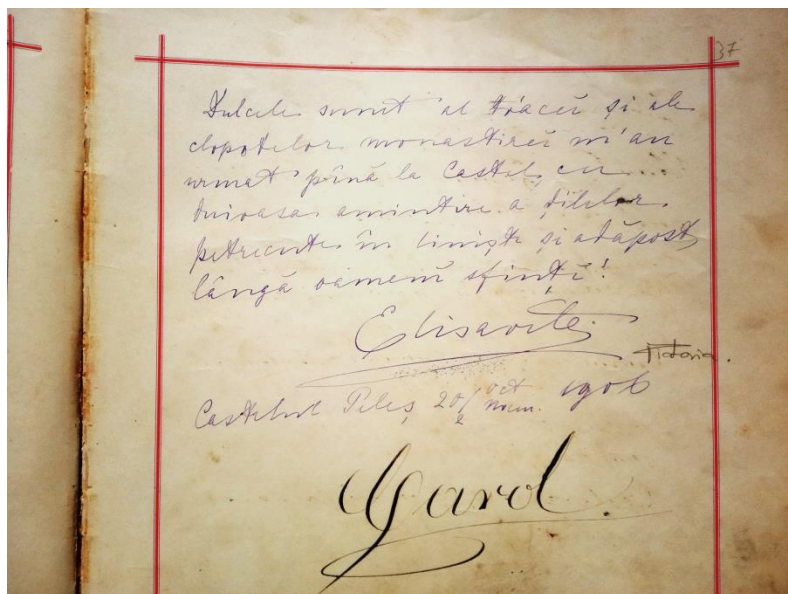 37
Dulcele sunet al tóacei și ale
clopotelor monastirei m'au
urmat pînă la Castel, cu
duioasa amintire a zilelor
petrecute în liniște și adăpost
lângă oameni sfinți!
Elisaveta
Castelul Peleș 20/2 oct/Noem. 1906
Carol.